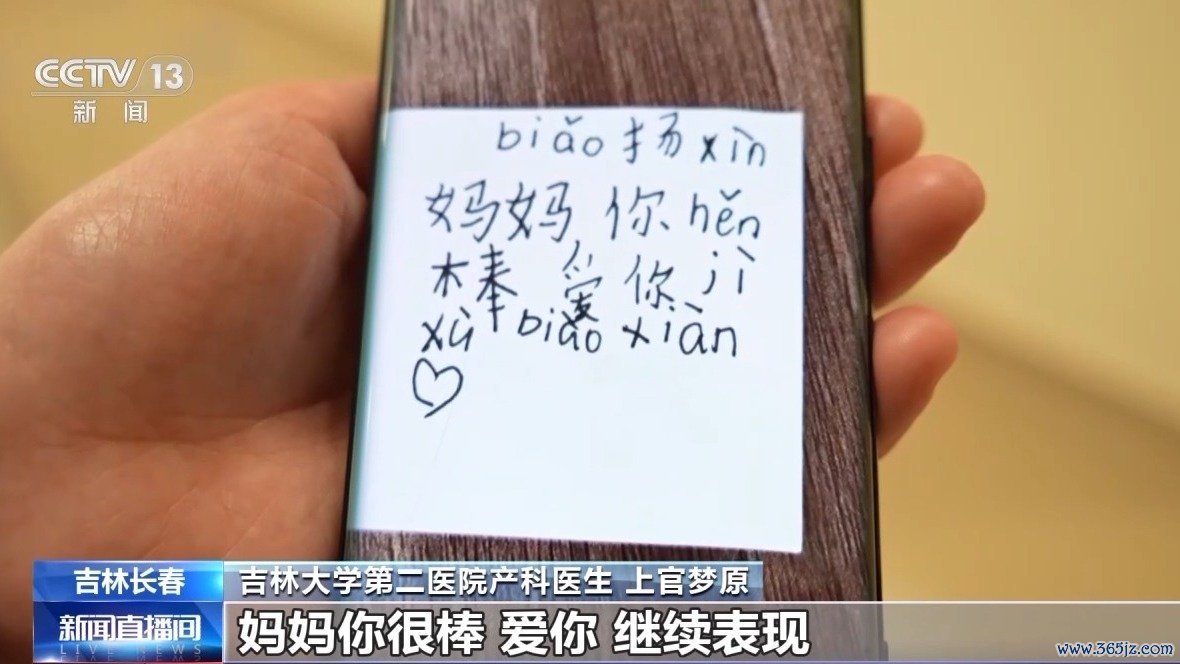 CCTV 13
新闻
biǎo 扬 xìn
妈妈 你 hěn
棒 爱 你 jì
xù biǎo xiàn
吉林长春
吉林大学第二医院产科医生 上官梦原
新闻直播间
LIVE NEWS
妈妈你很棒 爱你 继续表现
www.365jz.com